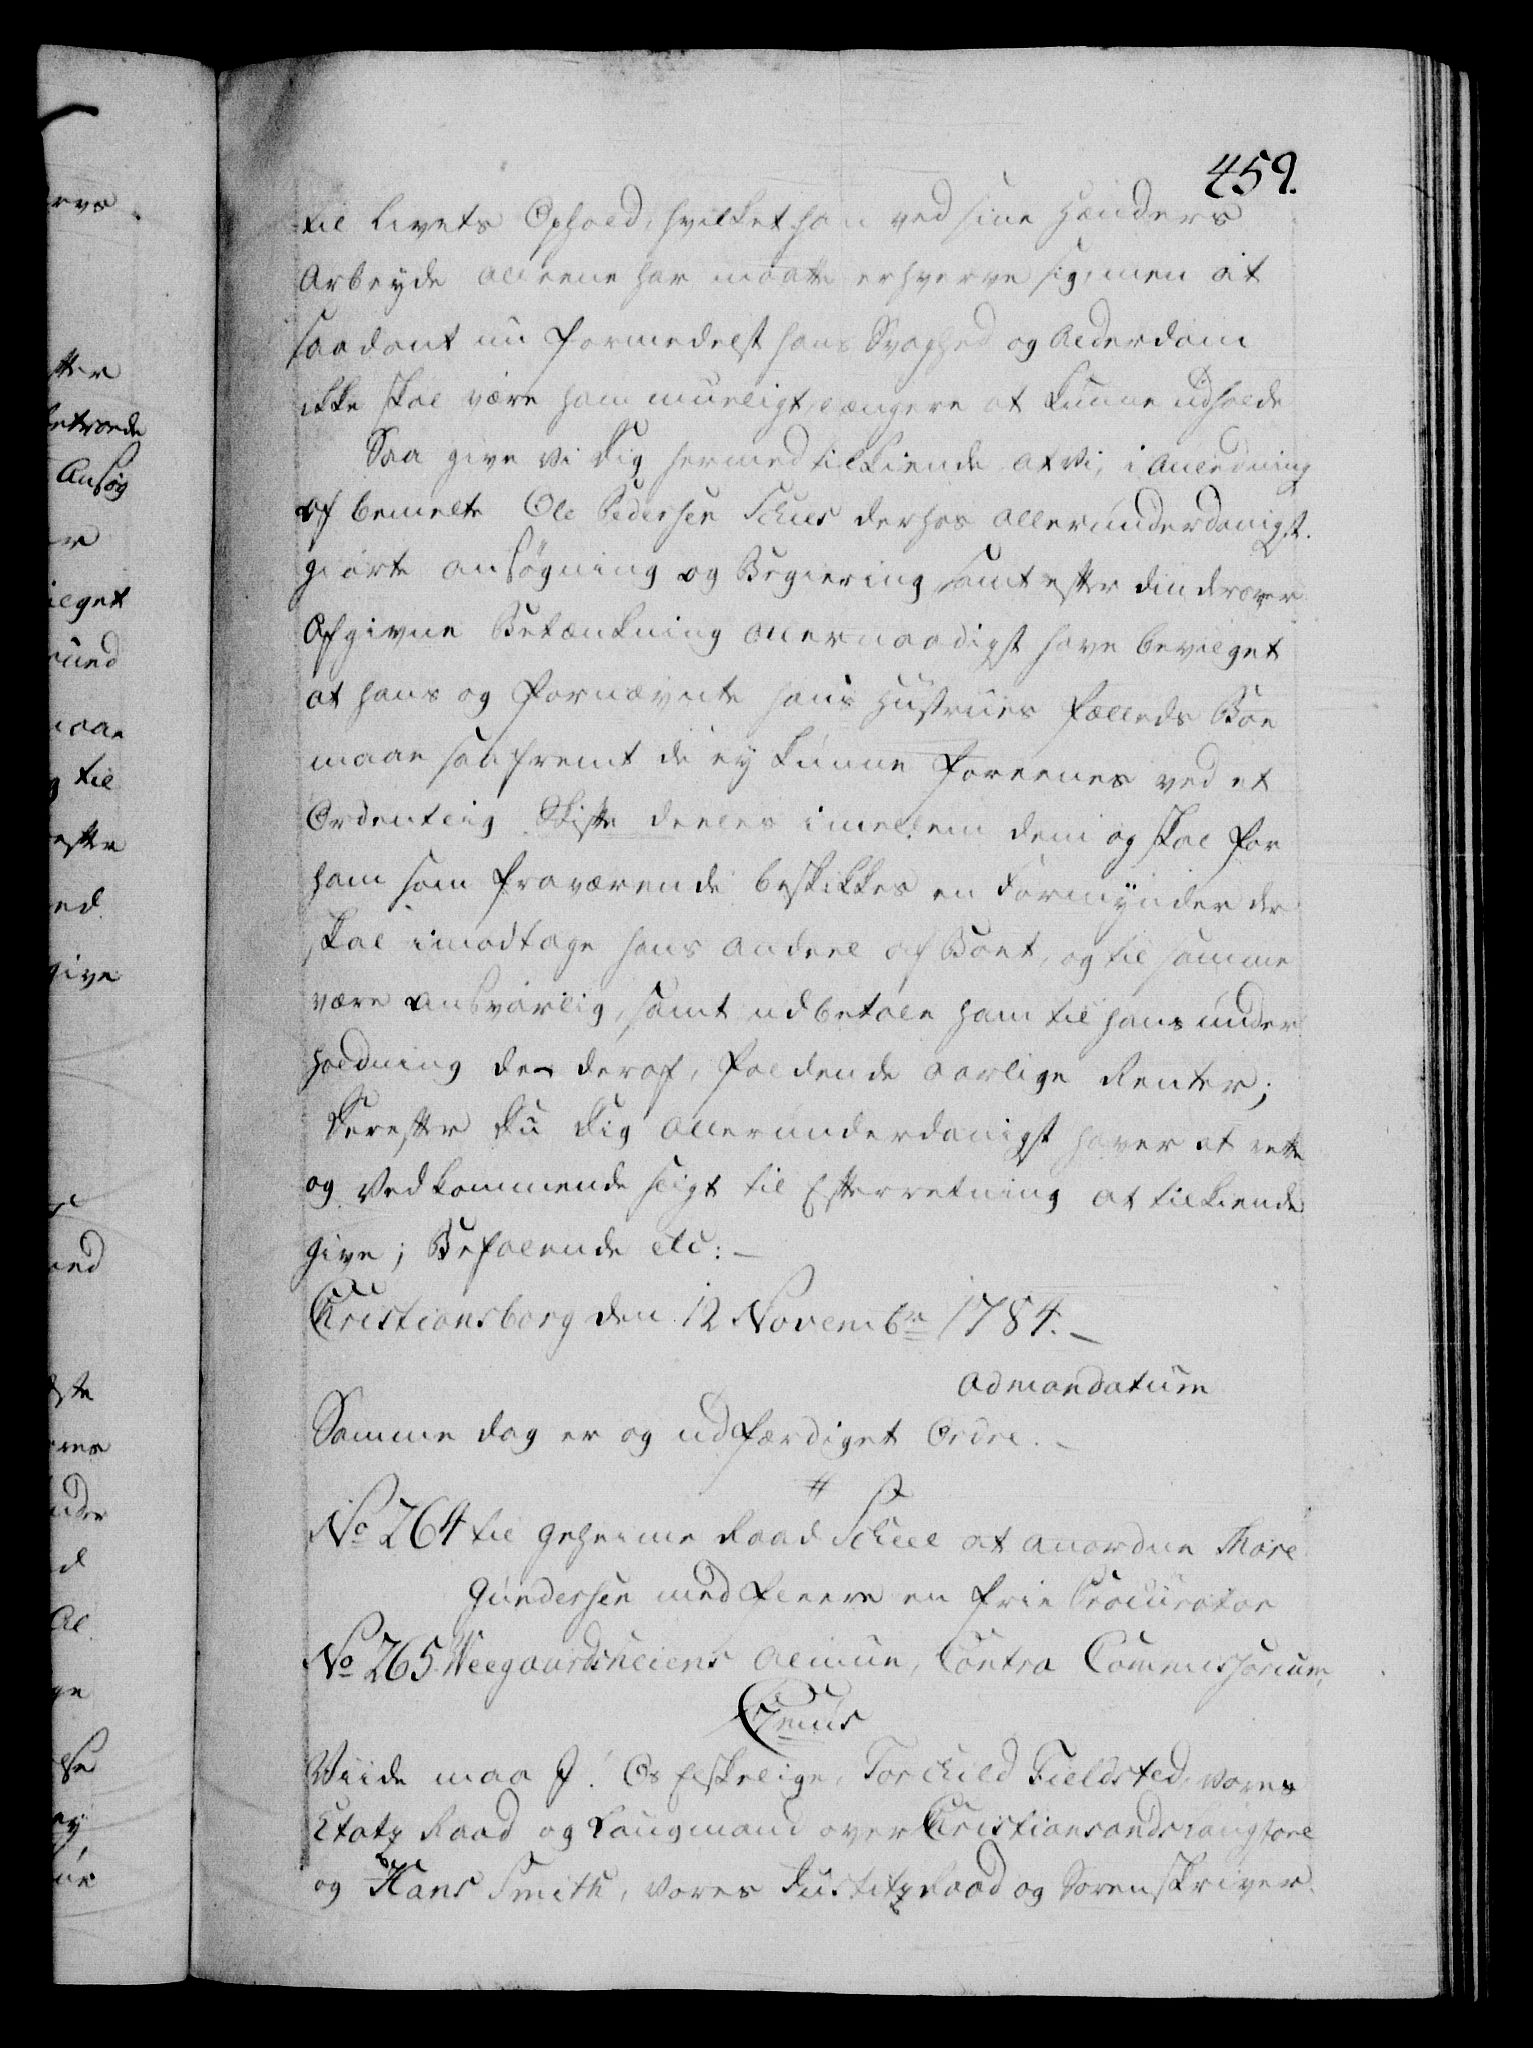 459.
til Livets Ophold, hvilket han ved sine Hænders
Arbeyde alleene har maatte erhverve sig, men at
saadant nu formedelst hans Svaghed og Alderdom
ikke skal være ham mueligt længere at kunne udholde
Saa give Vi Dig hermed tilkiende at Vi, i Anledning
af bemelte Ole Pedersen Schies derhos allerunderdanigst
giorte Ansøgning og Begiering samt efter din derover
Afgivne Betænkning allernaadigst have bevilget
at hans og fornævnte hans Hustrues Fælleds Boe
maae saafremt de ey kunne foreenes ved et
Ordentlig Skifte deeles imellem dem og skal for
ham som fraværende beskikkes en Formynder der
skal imodtage hans Andeel af Boet, og til samme
være Ansvarlig, samt udbetale ham til hans under
holdning de deraf, faldende aarlige Renter;
Derefter Du Dig allerunderdanigst haver at rette
og Vedkommende sligt til Efterretning at tilkiende
give; Befalende etc: —
Christiansborg den 12 Novembr 1784. —
ad mandatum
Samme dag er og udfærdiget Ordre. —
#
No 264 til Geheime Raad Scheel at anordne Thore
Gundersen med fleere en frie Procurator
No 265 Neegaards neiens Almue, Contra Commissorium,
C7mus
Viide maa I! Os Elskelige, Torchild Fieldsted, Vores
Etatz Raad og Laugmand over Christiansands Laugstoel
og Hans Smith, Vores Justitz Raad og Sorenskriver